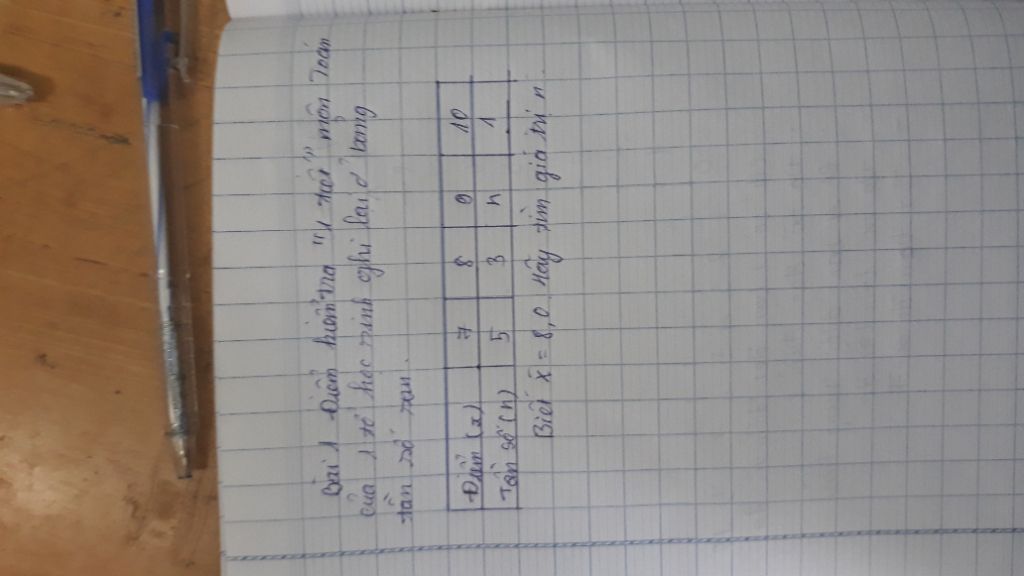 Bài 1 Điểm kiểm tra "1 tiết" môn toán
của 1 tổ học sinh ghi lại ở bảng
tần số sau.
Điểm (x) 7 8 9 10
Tần số (n) 5 3 n 1
Biết x̄ = 8,0. Hãy tìm giá trị n.